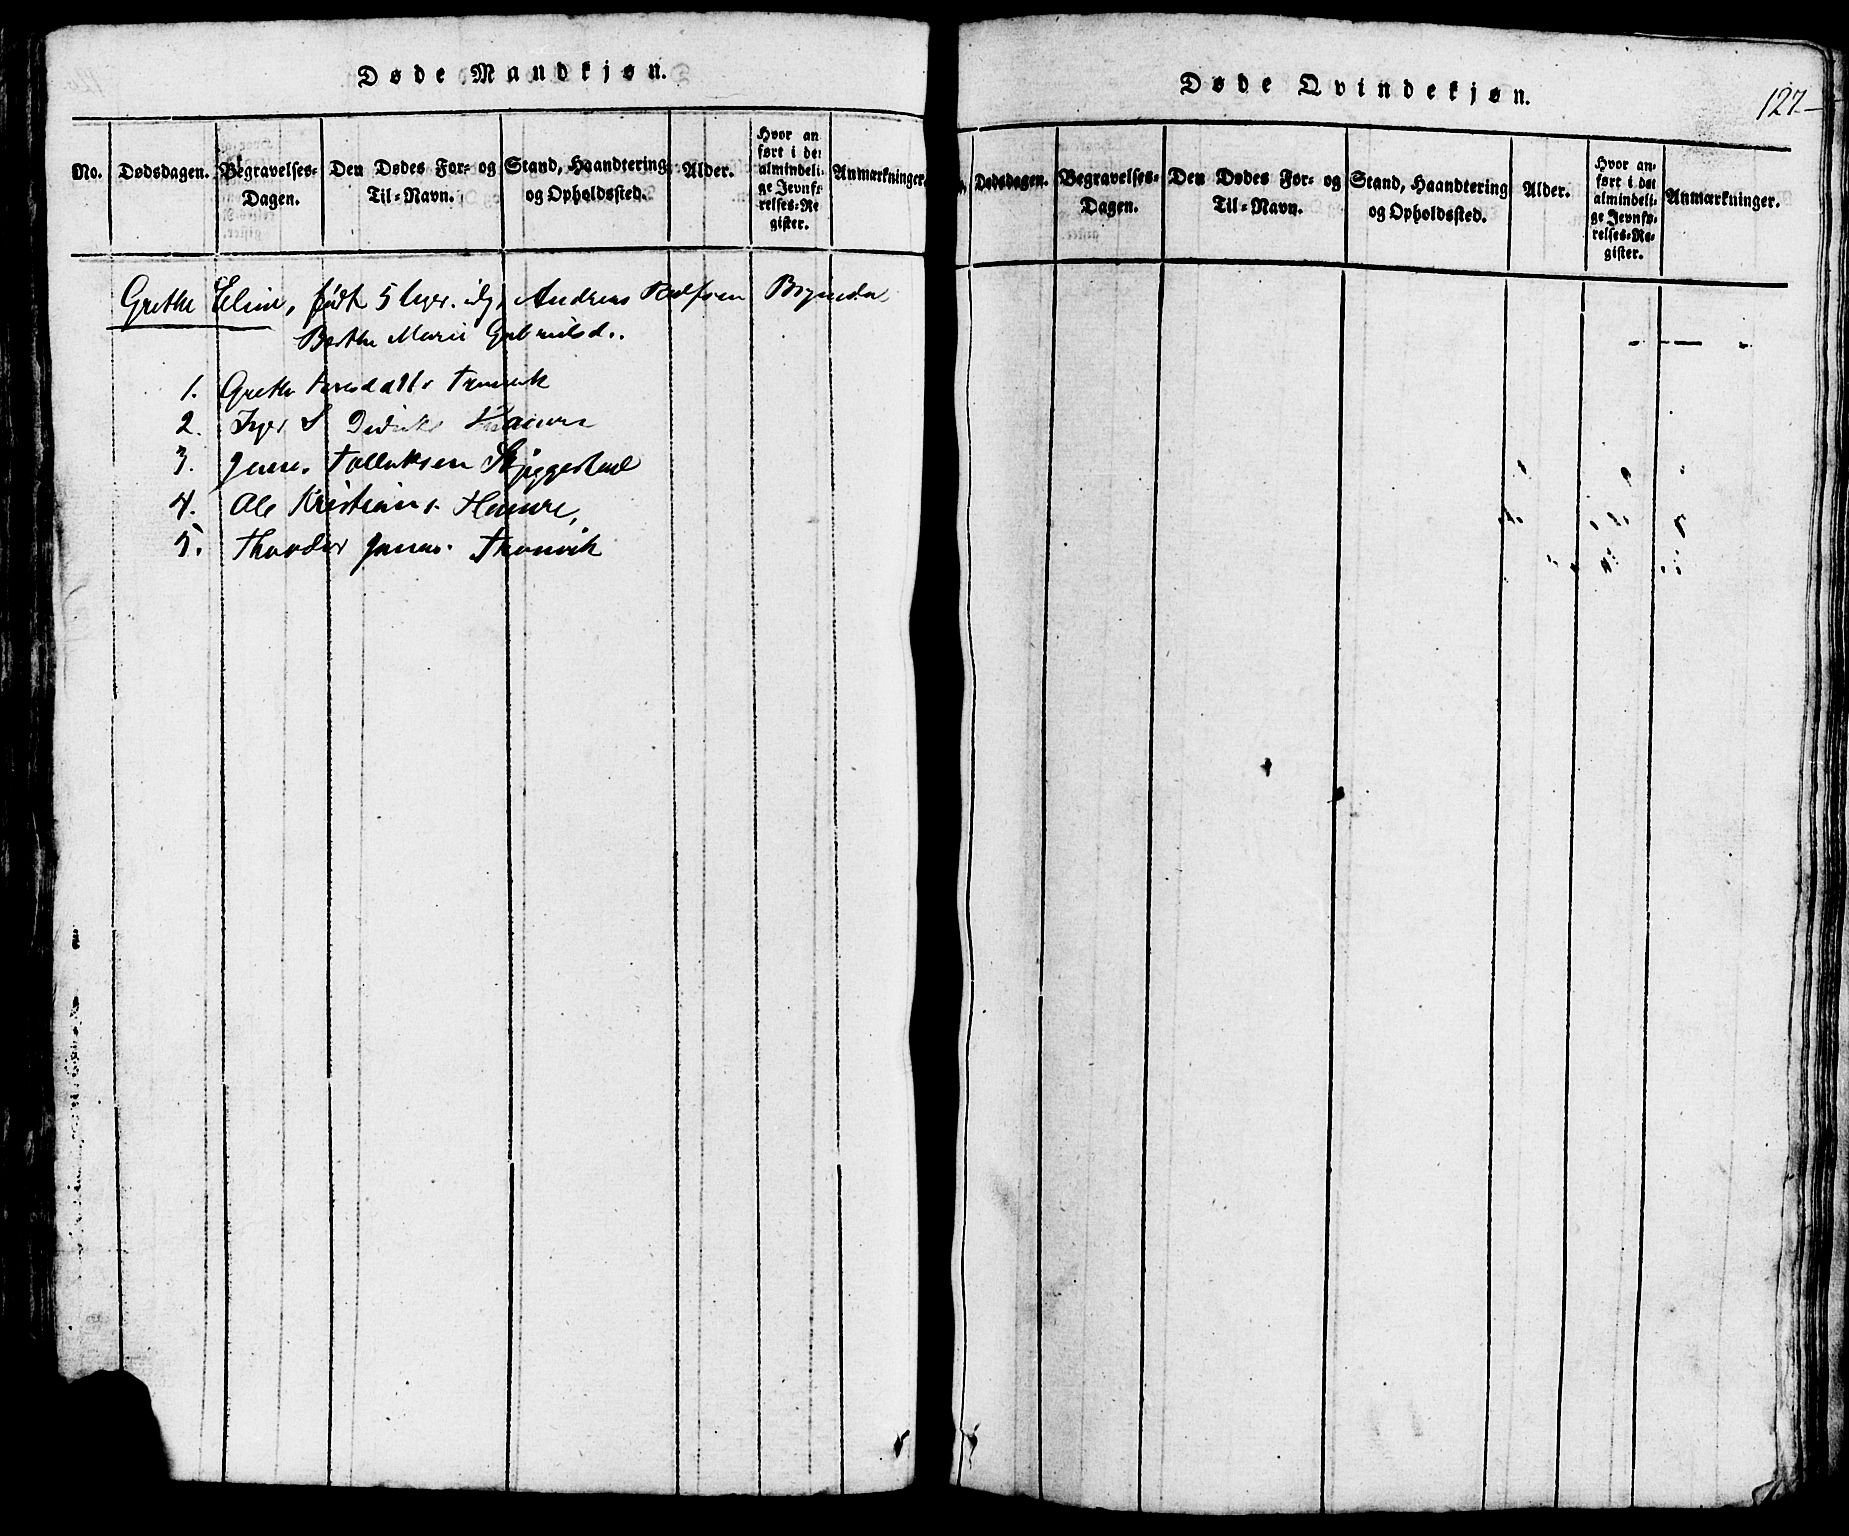 Døde Mandkjøn.
No.
Dødsdagen.
Begravelses-
Dagen.
Den Dødes For- og
Til-Navn.
Stand, Haandtering
og Opholdssted.
Alder.
Hvor an
ført i det
almindeli-
ge Jevnfø
relses-Re
gister.
Anmærkninger.
Grethe Eline, født 5 Andreas Brynsda
Berthe Marie Gabrielsd.
1. Grethe
2. Inger
3. Tallaksen Skjeggestad
4. Ole Kristians. Hamre,
5. Jonas. Thronvik
Døde Qvindekjøn.
127
Dødsdagen.
Begravelses-
Dagen.
Den Dødes For- og
Til-Navn.
Stand, Haandtering
og Opholdssted.
Alder.
Hvor an-
ført i det
almindeli-
ge Jevnfø-
relses-Re-
gister.
Anmærkninger.